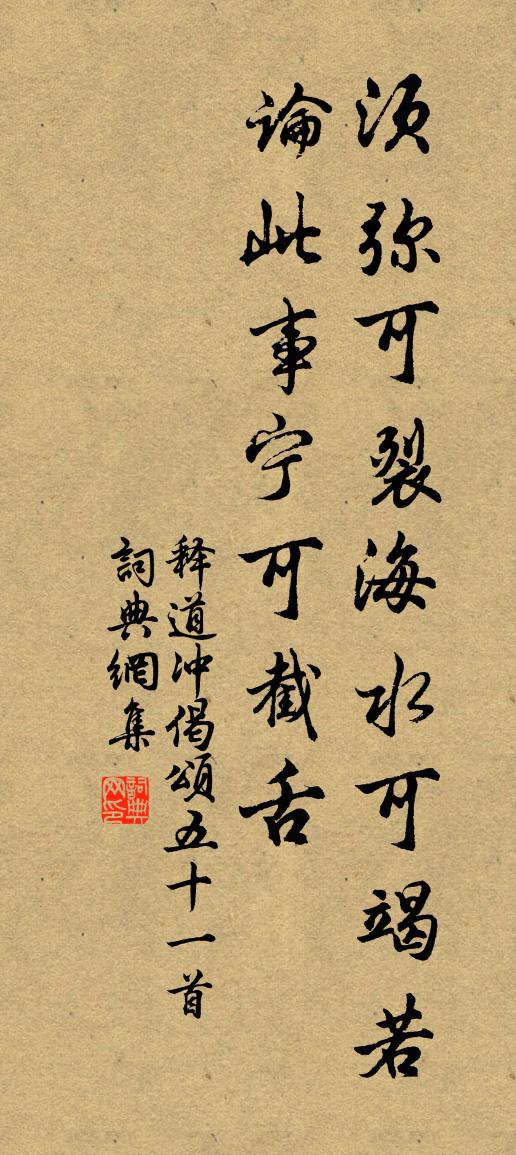 须弥可裂海水可竭若
論此事宁可截舌
释道冲偈頌五十一首
詞典網集
詞典网印